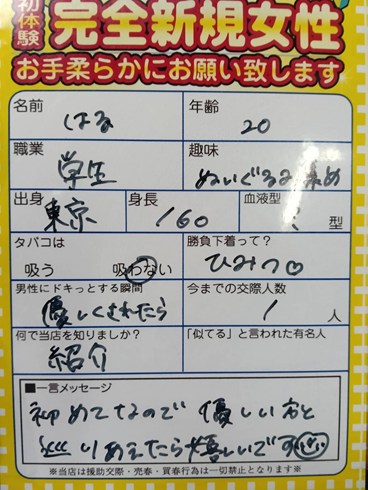 初体験
完全新規女性
お手柔らかにお願い致します
名前 はる 年齢 20
職業 学生 趣味 ぬいぐるみ集め
出身 東京 身長 160 血液型 ? 型
タバコは 吸う 吸わない 勝負下着って? ひみつ♡
男性にドキっとする瞬間 優しくされたら 今までの交際人数 1 人
何で当店を知りましたか? 紹介 「似てる」と言われた有名人
■一言メッセージ
初めてなので 優しい方と
りあえたら嬉しいです
※当店は援助交際・売春・買春行為は一切禁止となります※